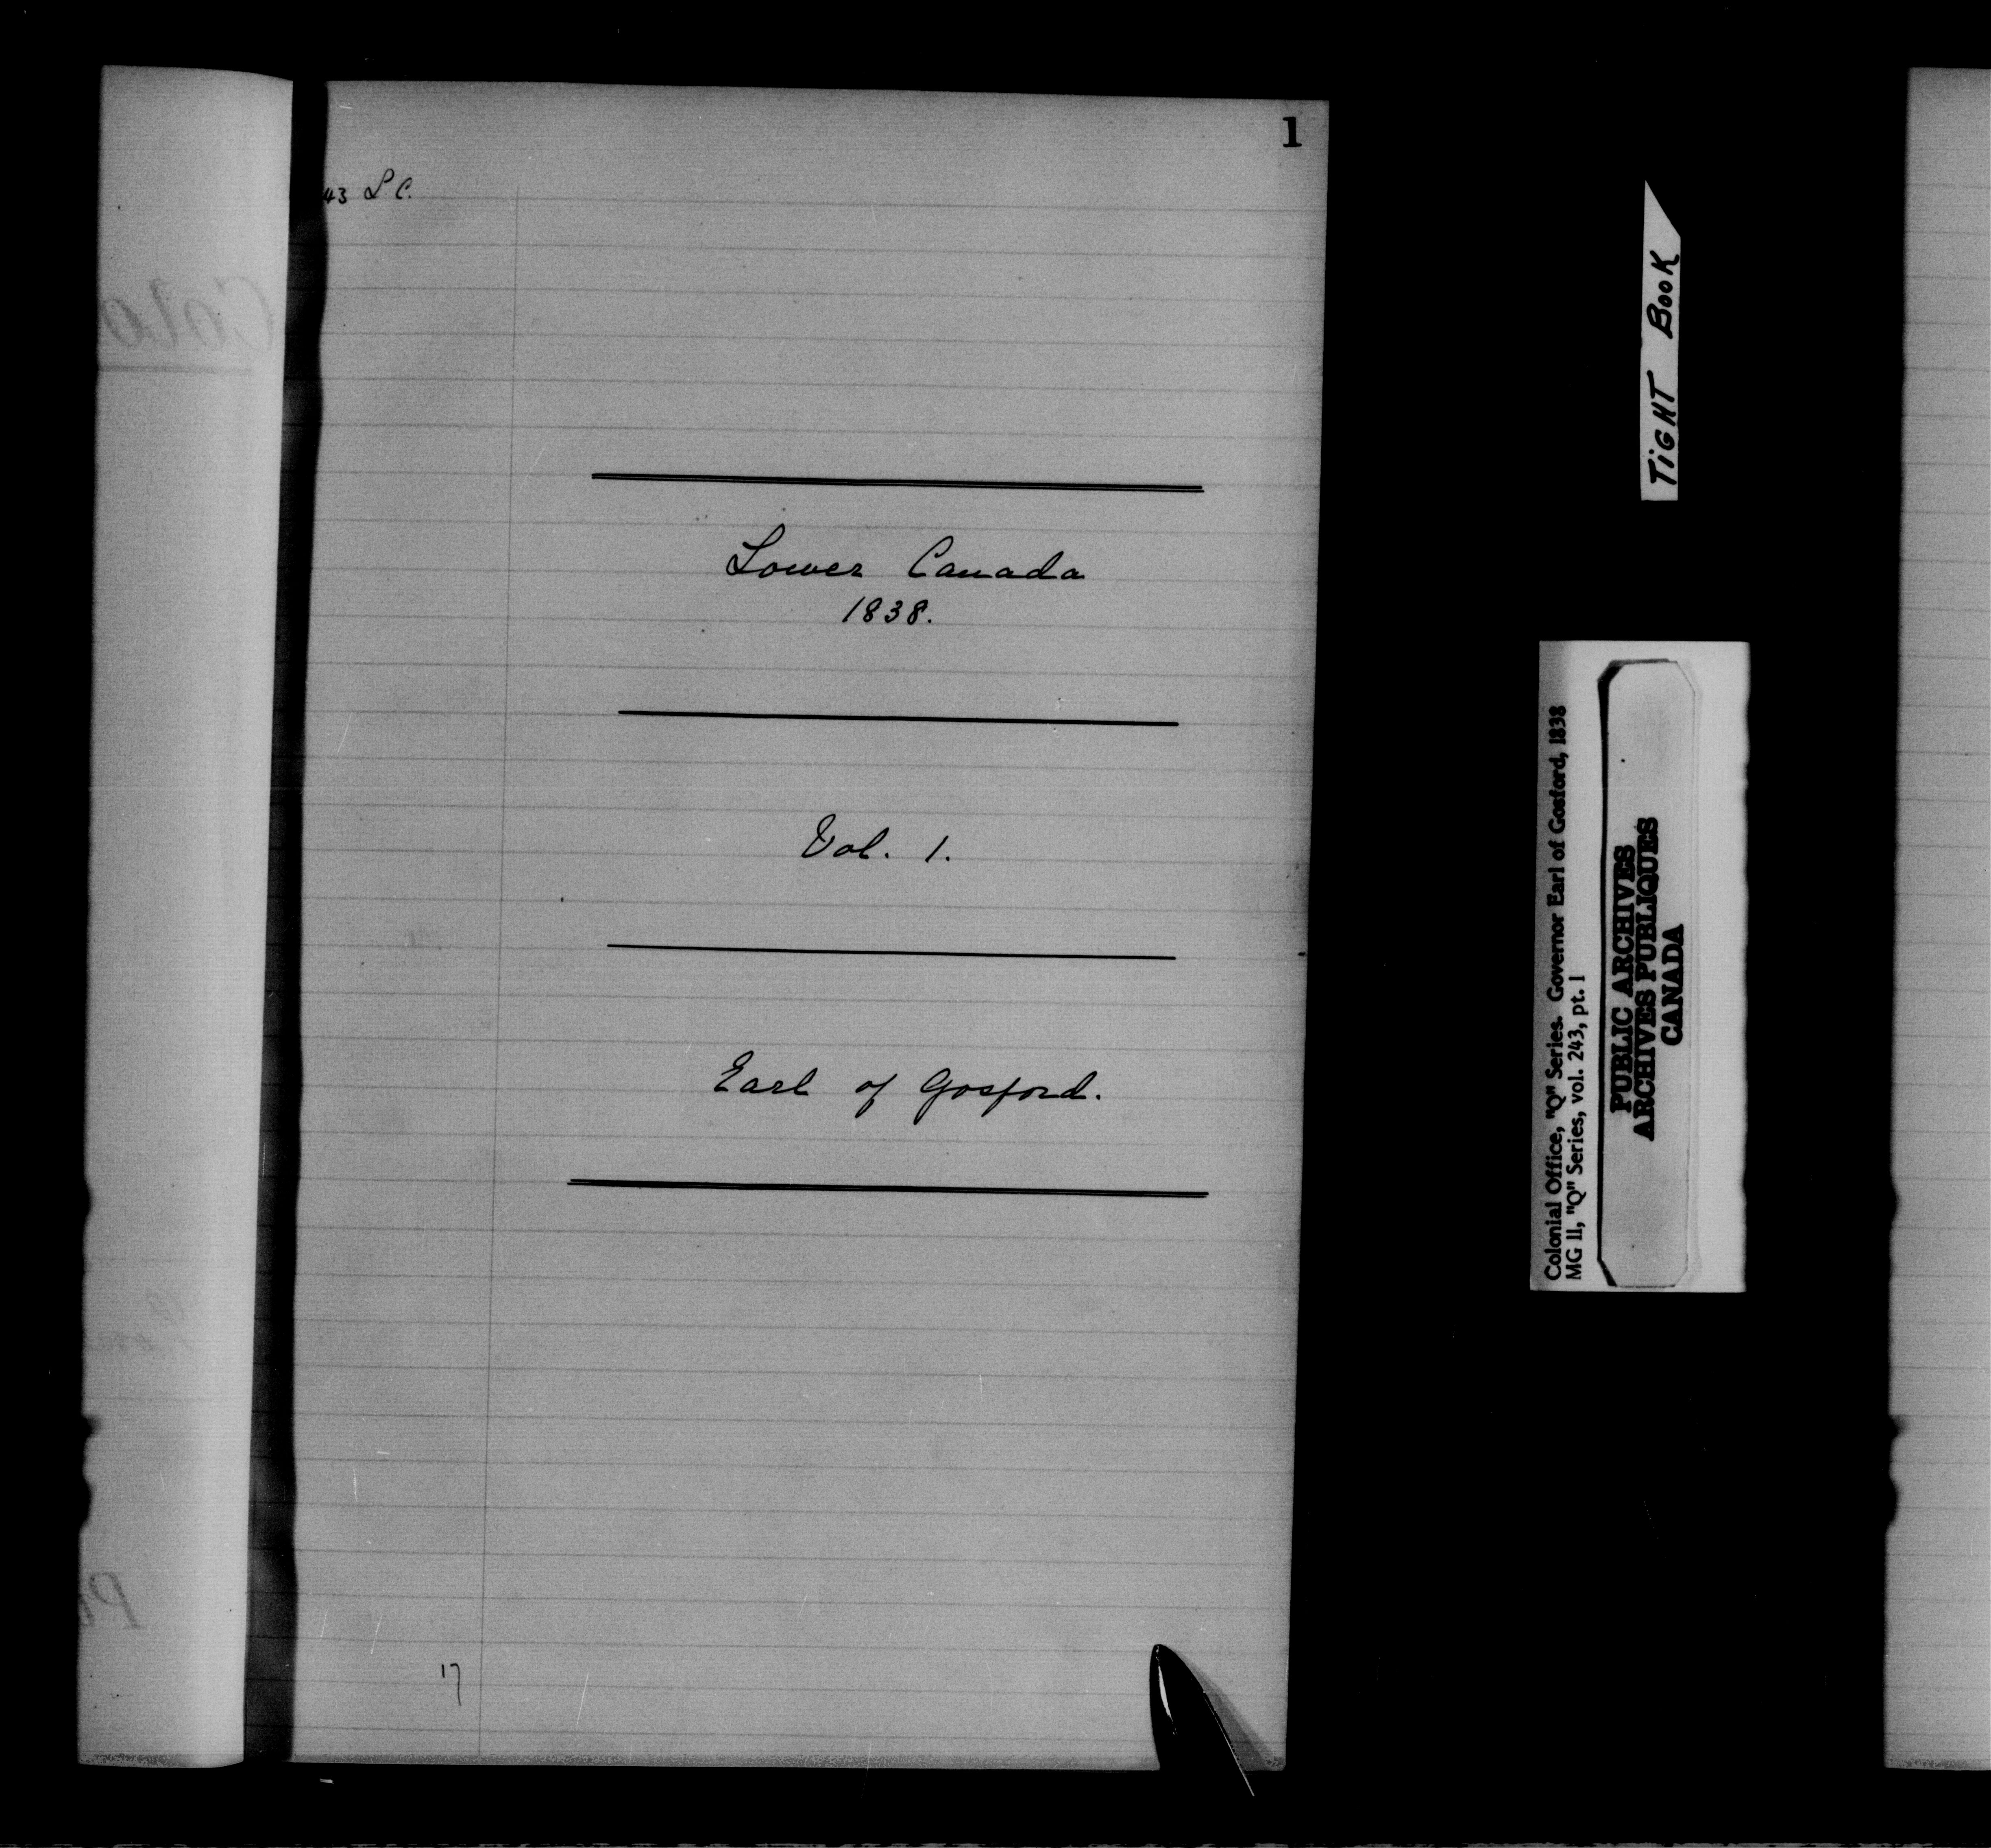 1
43 L.C.
Lower Canada
1838.
Vol. 1.
Earl of Gosford.
17
TiGHT BooK
Colonial Office, "Q" Series. Governor Earl of Gosford, 1838
MG 11, "Q" Series, vol. 243, pt. 1
PUBLIC ARCHIVES
ARCHIVES PUBLIQUES
CANADA